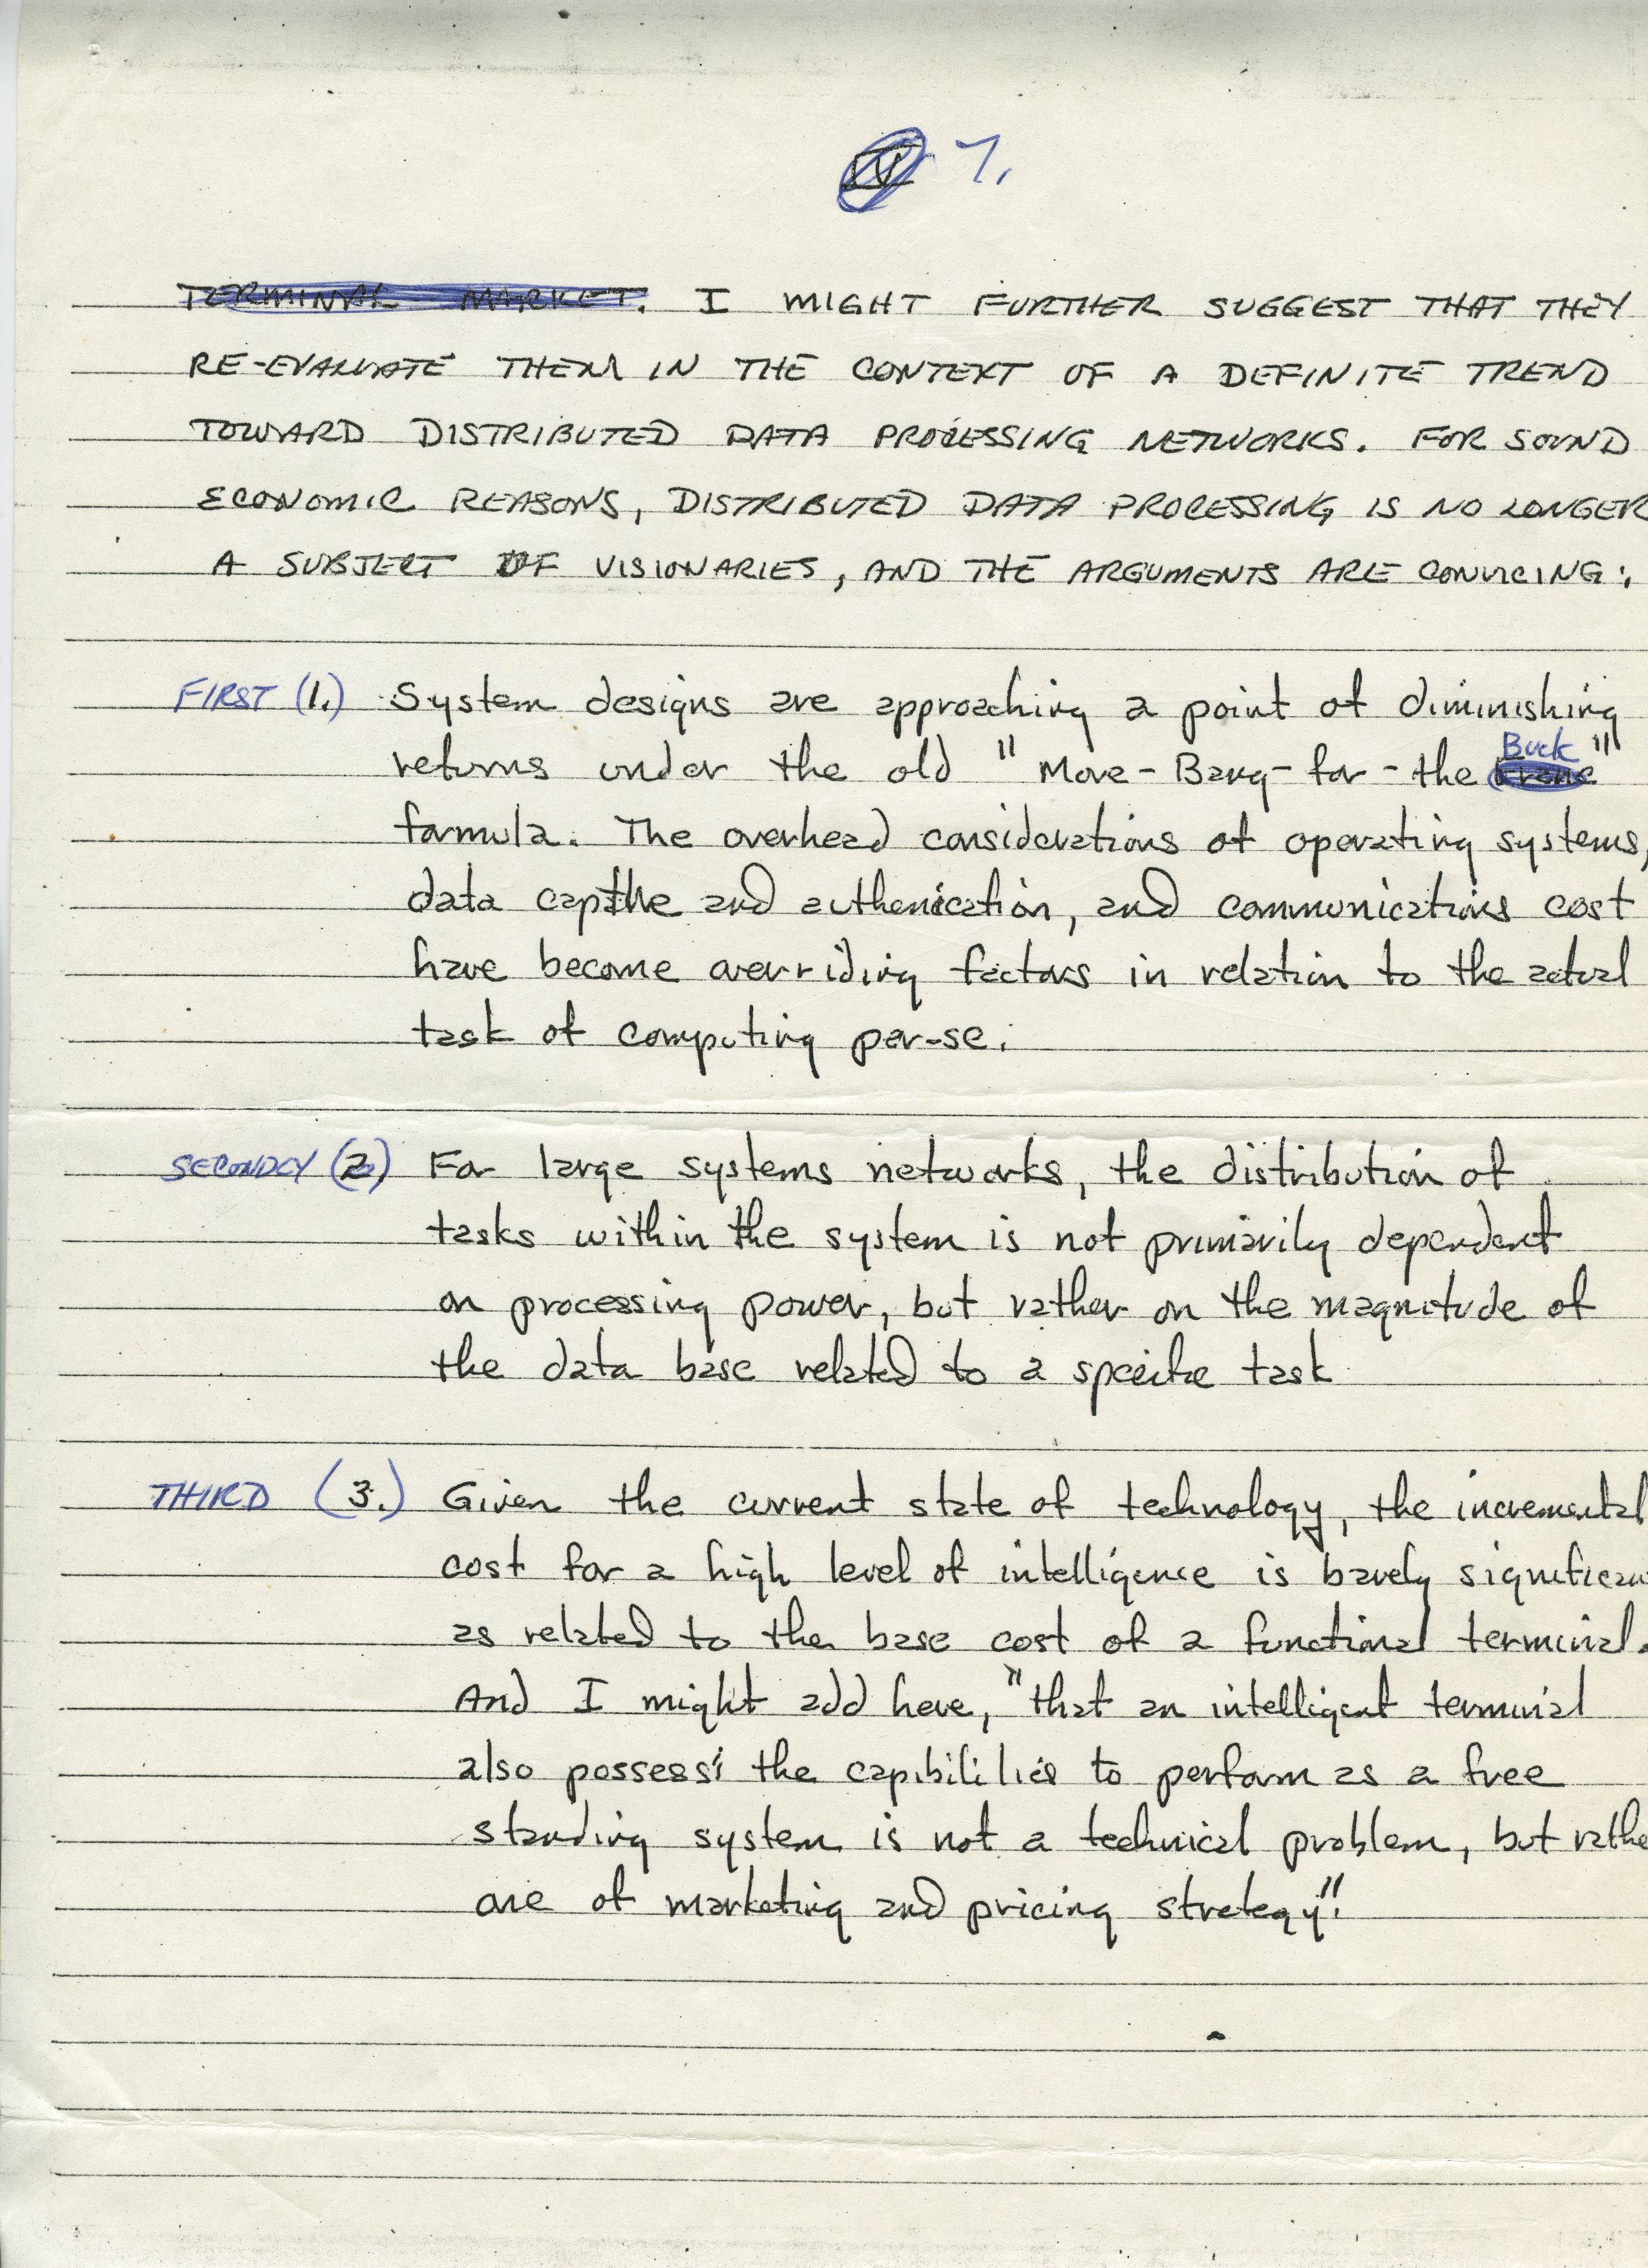 IV 7.
TERMINAL MARKET. I MIGHT FURTHER SUGGEST THAT THEY
RE-EVALUATE THEM IN THE CONTEXT OF A DEFINITE TREND
TOWARD DISTRIBUTED DATA PROCESSING NETWORKS. FOR SOUND
ECONOMIC REASONS, DISTRIBUTED DATA PROCESSING IS NO LONGER
A SUBJECT OF VISIONARIES, AND THE ARGUMENTS ARE CONVICING:
FIRST (1.) System designs are approaching a point of diminishing
Buck
returns under the old "More-Bang-for-the Franc"
formula. The overhead considerations of operating systems,
data capture and authenication, and communications cost
have become overriding factors in relation to the actual
task of computing per-se.
SECONDLY (2) For large systems networks, the distribution of
tasks within the system is not primarily dependent
on processing power, but rather on the magnitude of
the data base related to a specific task
THIRD (3.) Given the current state of technology, the incremental
cost for a high level of intelligence is barely significan
as related to the base cost of a functional terminal.
And I might add here, "that an intelligent terminal
also possess the capibilities to perform as a free
standing system is not a technical problem, but rathe
one of marketing and pricing strategy".